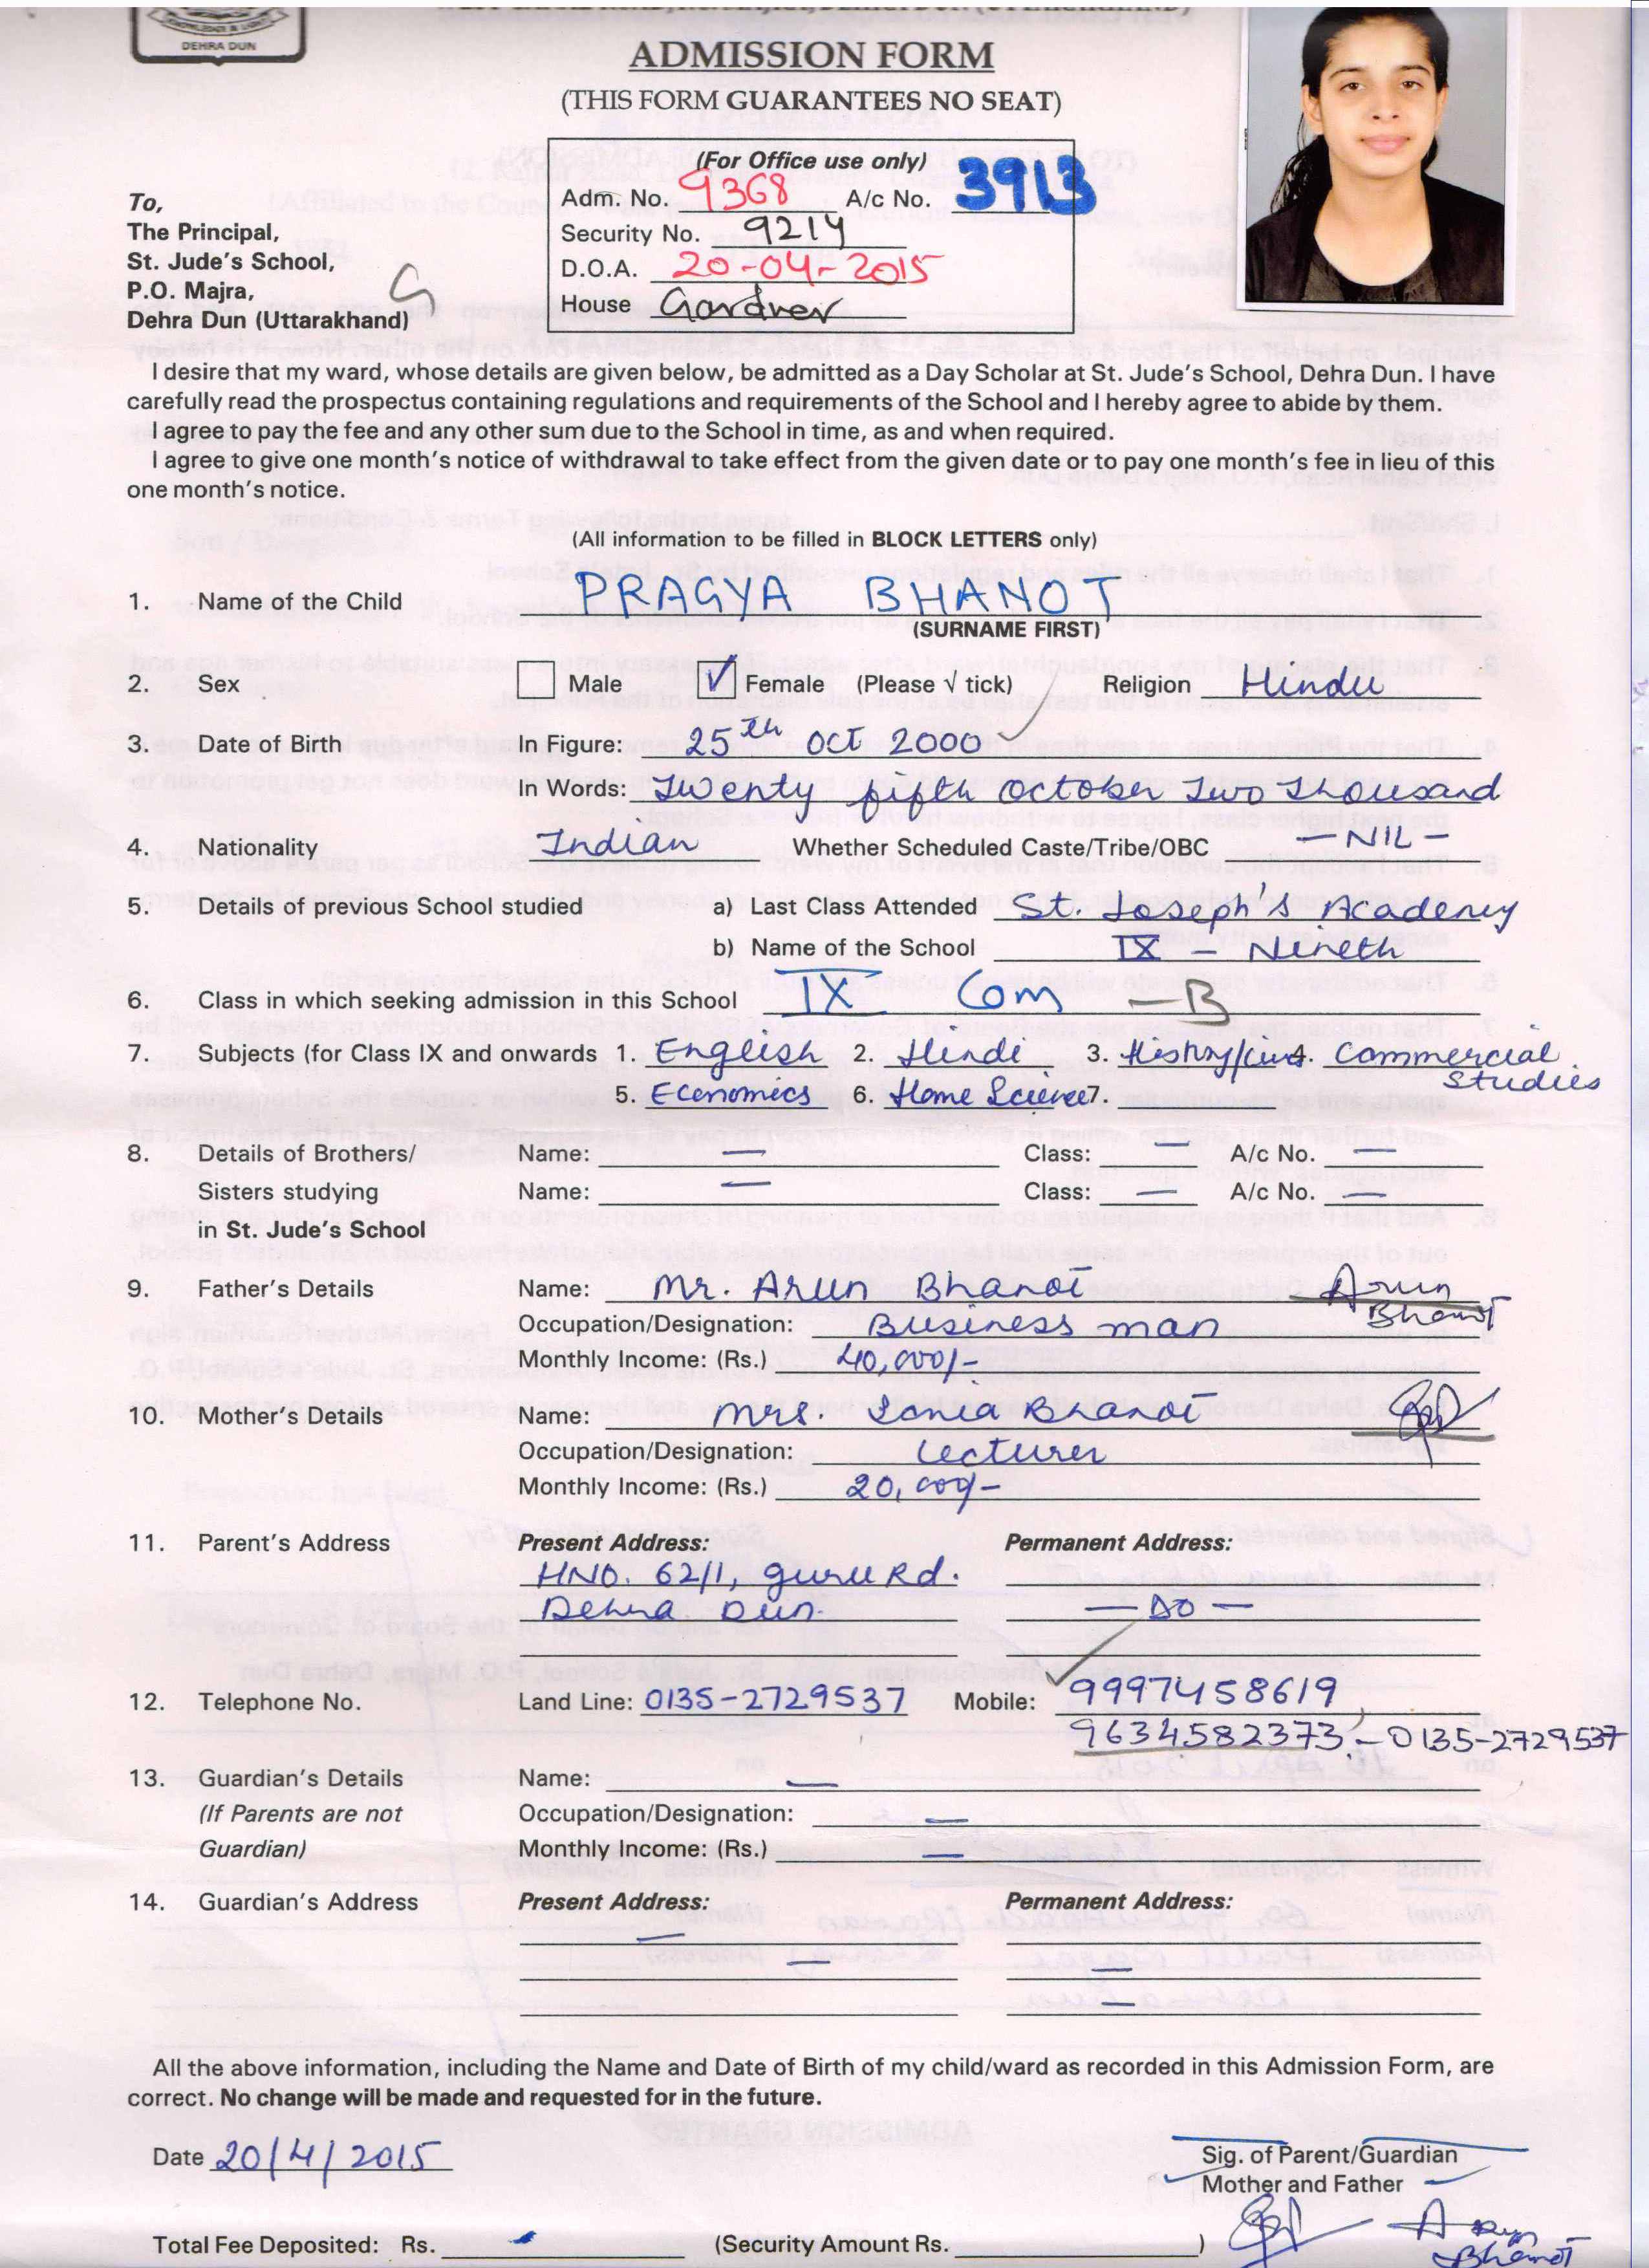 DEHRA DUN
ADMISSION FORM
(THIS FORM GUARANTEES NO SEAT)
(For Office use only)
Adm. No. 9368 A/c No. 3913
Security No. 9214
D.O.A. 20-04-2015
House Gardner
To,
The Principal,
St. Jude's School,
P.O. Majra,
Dehra Dun (Uttarakhand)
G
I desire that my ward, whose details are given below, be admitted as a Day Scholar at St. Jude's School, Dehra Dun. I have
carefully read the prospectus containing regulations and requirements of the School and I hereby agree to abide by them.
I agree to pay the fee and any other sum due to the School in time, as and when required.
I agree to give one month's notice of withdrawal to take effect from the given date or to pay one month's fee in lieu of this
one month's notice.
(All information to be filled in BLOCK LETTERS only)
1. Name of the Child PRAGYA BHANOT
(SURNAME FIRST)
2. Sex Male ✓ Female (Please √ tick) Religion Hindu
3. Date of Birth In Figure: 25th Oct 2000
In Words: Twenty fifth October Two Thousand
4. Nationality Indian Whether Scheduled Caste/Tribe/OBC — NIL —
5. Details of previous School studied a) Last Class Attended St. Joseph's Academy
b) Name of the School IX - Nineth
6. Class in which seeking admission in this School IX Com — B
7. Subjects (for Class IX and onwards 1. English 2. Hindi 3. History/ 4. Commercial
Studies
5. Economics 6. Home Science 7.
8. Details of Brothers/ Name: — Class: — A/c No. —
Sisters studying Name: — Class: — A/c No. —
in St. Jude's School
9. Father's Details Name: Mr. Arun Bhanot Arun
Bhanot
Occupation/Designation: Business man
Monthly Income: (Rs.) 40,000/-
10. Mother's Details Name: Mrs. Sonia Bhanot
Occupation/Designation: Lecturer
Monthly Income: (Rs.) 20,000/-
11. Parent's Address Present Address: Permanent Address:
HNO. 62/1, Guru Rd.
Dehra Dun. — DO —
12. Telephone No. Land Line: 0135-2729537 Mobile: 9997458619,
9634582373, — 0135-2729537
13. Guardian's Details Name: —
(If Parents are not Occupation/Designation: —
Guardian) Monthly Income: (Rs.) —
14. Guardian's Address Present Address: Permanent Address:
—
— —
—
All the above information, including the Name and Date of Birth of my child/ward as recorded in this Admission Form, are
correct. No change will be made and requested for in the future.
Date 20/4/2015
Sig. of Parent/Guardian
Mother and Father
Total Fee Deposited: Rs. (Security Amount Rs. )
Arun
Bhanot